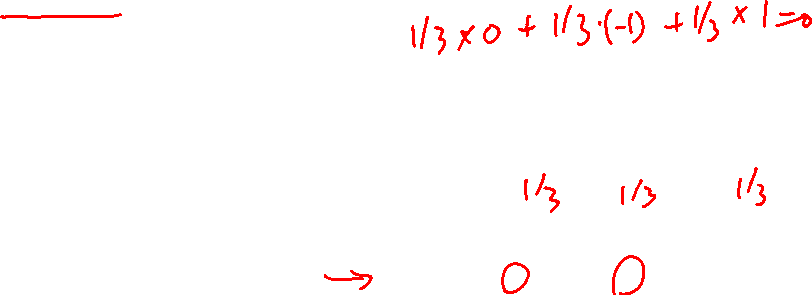 1/3 × 0 + 1/3 · (-1) + 1/3 × 1 = 0
1/3 1/3 1/3
→ 0 0